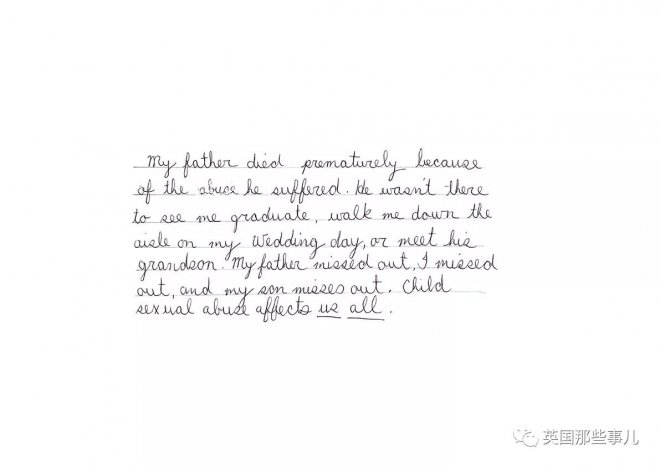 My father died prematurely because
of the abuse he suffered. He wasn't there
to see me graduate, walk me down the
aisle on my Wedding day, or meet his
grandson. My father missed out, I missed
out, and my son misses out. Child
sexual abuse affects us all.
英国那些事儿